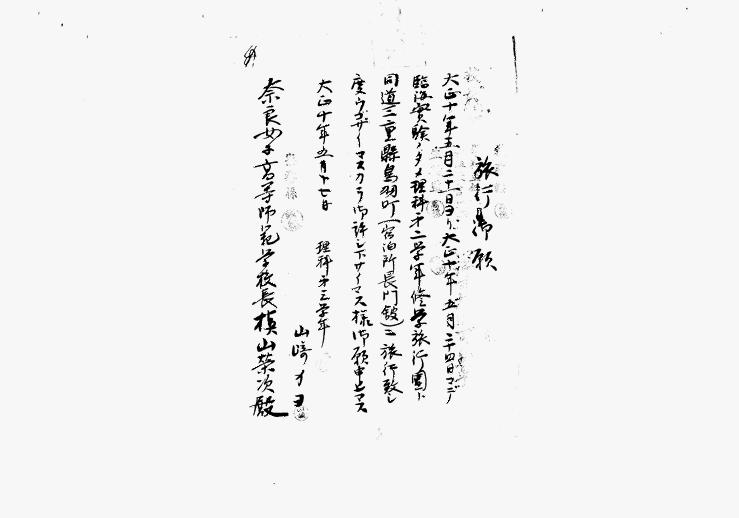 旅行御願
大正十年五月二十一日ヨリ大正十年五月二十四日マデ
臨海実験ノタメ理科第二学年修学旅行團ト
同道三重縣鳥羽町(宿泊所長門館)ニ旅行致シ
度ウゴザイマスカラ御許シ下サイマス様御願申上マス
大正十年五月十七日
理科第三学年
山崎
奈良女子高等師範学校長槙山榮次殿